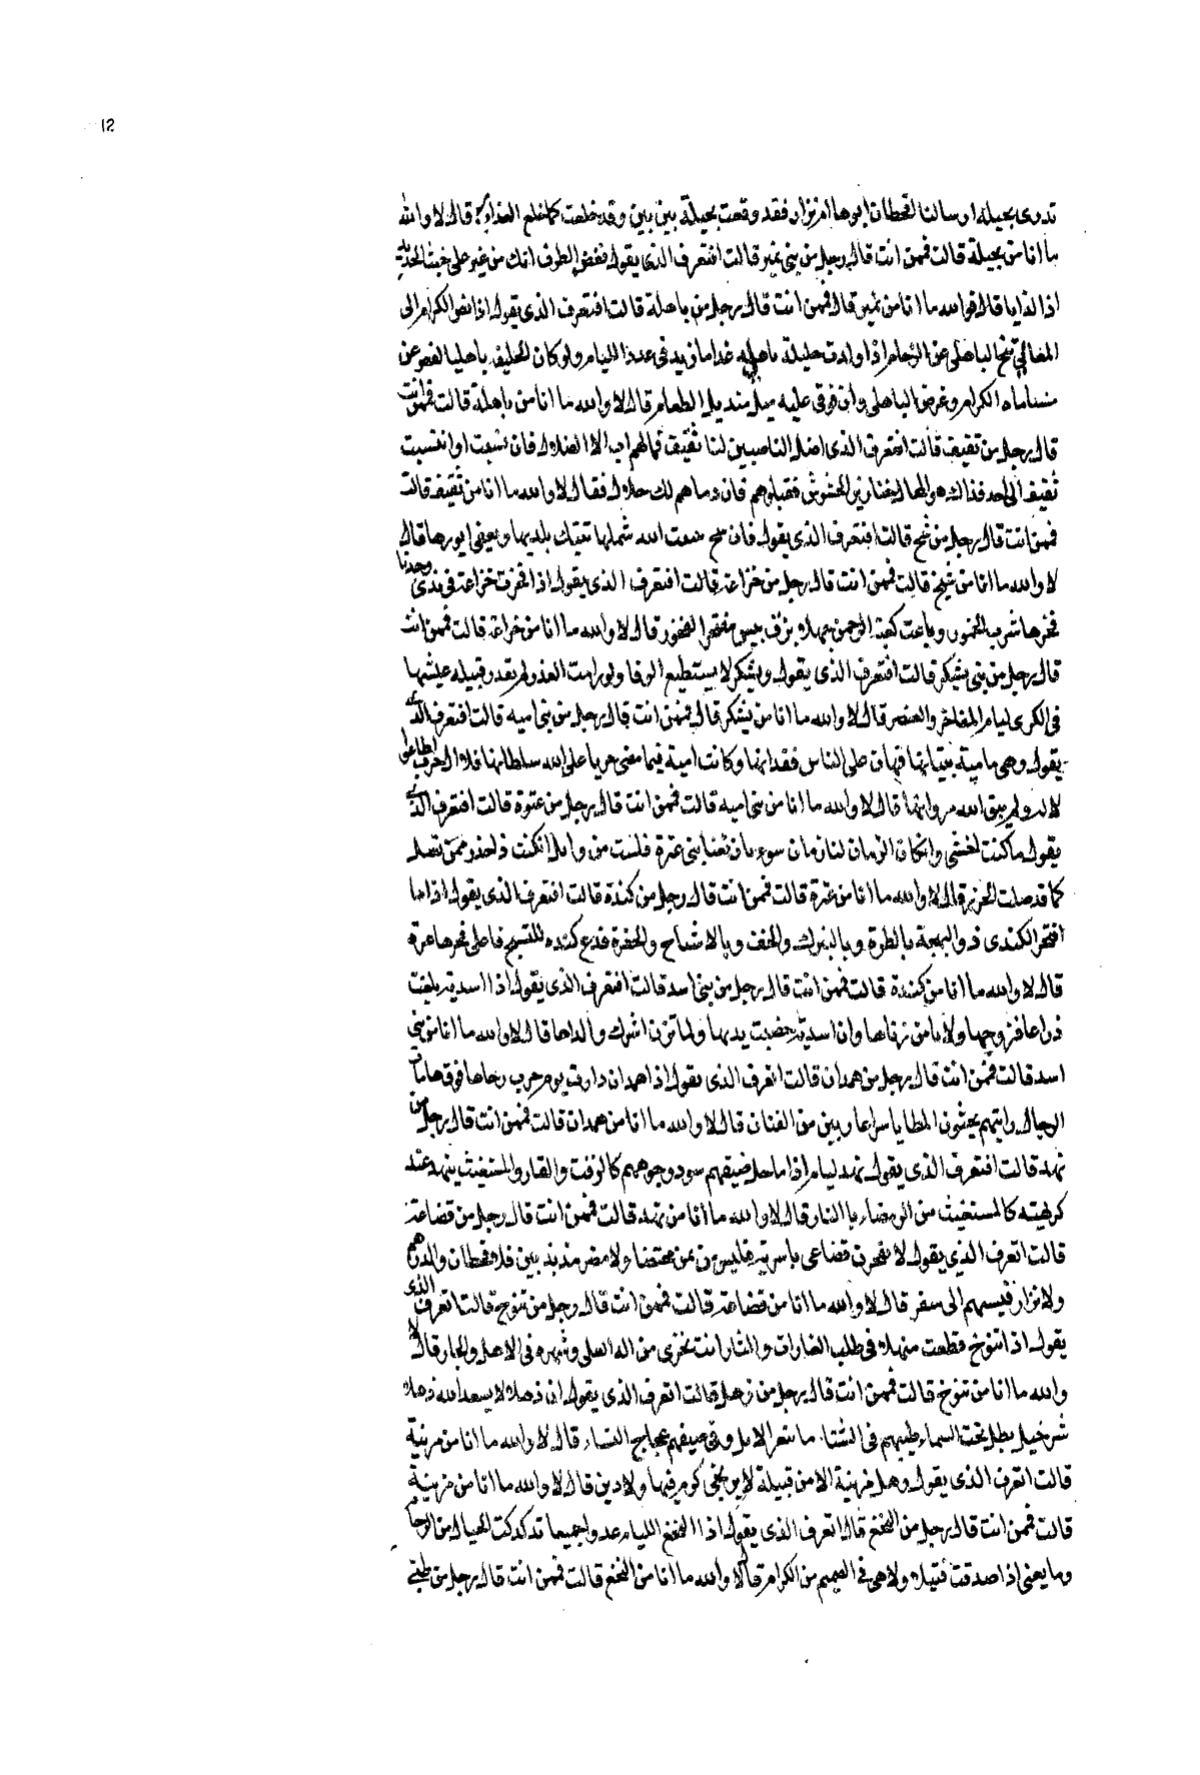 12
تدرى بجيلة ار سالنا لقحطان ابوها ام نزار فقد وقعت بجيلة بين بين وقد خلعت كما خلع العذار قال لا والله
ما انا من بجيلة قالت فممن انت قال رجل من بنى نمير قالت افتعرف الذى يقول فغض الطرف انك من نمير على خبث الحديد
اذا لذابا قال فوالله ما انا من نمير قال فممن انت قال رجل من باهلة قالت افتعرف الذى يقول اذا نص الكرام الى
المعالى تنح الباهلى عن الزحام اذا ولدت حليلة باهلى غداما زيد فى عدد الليام ولو كان الخليفه باهليا لقصر عن
مساماه الكرام وعرض الباهلى وان توقى عليه مثل منديل الطعام قال لا والله ما انا من باهلة قالت فممن انت
قال رجل من ثقيف قالت افتعرف الذى اضل الناسبين لنا ثقيف فمالهم اب الا الضلال فان نسبت او انتسبت
ثقيف الى احد فذاك هو المحال خنازير الحشوش فقتلوهم فان دماهم لك حلال فقال لا والله ما انا من ثقيف قالت
فممن انت قال رجل من قالت افتعرف الذى يقول فان شتت الله شملها قال
لا والله ما انا من قالت فممن انت قال رجل من خزاعة قالت افتعرف الذى يقول اذا فخرت خزاعة فى ندى وجدنا
فخرها شرب الخمور وباعت كعبة الرحمن جهلا بزق بيس مفتخر الفخور قال لا والله ما انا من خزاعة قالت فممن انت
قال رجل من بنى يشكر قالت افتعرف الذى يقول ويشكر لا يستطيع الوفا ولو رامت الغدر لم تغدر قبيله عيشها
فى الكرى ليام المفاخر والعنصر قال لا والله ما انا من يشكر قال فممن انت قال رجل من بنى اميه قالت افتعرف الذى
يقول وهى بامية بنيانها فهان على الناس فقدانها وكانت امية فيما مضى حريا على الله سلطانها فلا ال حرب اطاعوا
لاله ولم يبق الله مروانها قال لا والله ما انا من بنى اميه قالت فممن انت قال رجل من عنزة قالت افتعرف الذى
يقول ما كنت اخشى وان كان الزمان لنا زمان سوء بان تغتابنى عنزة فلست من وايل ان كنت ذا حذر ممن تصل
كما قد صلت الخزرة قال لا والله ما انا من عنزة قالت فممن انت قال رجل من كندة قالت افتعرف الذى يقول اذا ما
افتخر الكندى ذو البهجة بالطرة وبالنيرك والخف وبالاشباح والحفرة فدع كنده للنسج فاعلى فخرها عرة
قال لا والله ما انا من كندة قالت فممن انت قال رجل من بنى اسد قالت افتعرف الذى يقول اذا اسدية بلغت
ذراعا فزوجها ولا تامن زناها وان اسدية خضبت يديها ولما تزن اشرك والداها قال لا والله ما انا من بنى
اسد قالت فممن انت قال رجل من همدان قالت اتعرف الذى يقول اذا همدان دارت يوم حرب رحاها فوق هامات
الرجال رايتهم يحثون المطايا سراعا قال لا والله ما انا من همدان قالت فممن انت قال رجل من
نهد قالت افتعرف الذى يقول نهد ليام اذا ما حل ضيفهم سود وجوههم كالزفت والقار والمستغيث بنهد عند
كربته كالمستغيث من الرمضاء بالنار قال لا والله ما انا من نهد قالت فممن انت قال رجل من قضاعة
قالت اتعرف الذى يقول لا يفخرن قضاعى باسرته فليس من يمن محضا ولا مضر مذبذبين فلا قحطان والدهم
ولا نزار فسيبهم الى سقر قال لا والله ما انا من قضاعة قالت فممن انت قال رجل من تنوخ قالت اتعرف الذى
يقول اذا تنوخ قطعت منهلا فى طلب الغارات والثار انت بخزى من اله العلى وشهره فى الاهل والجار قال لا
والله ما انا من تنوخ قالت فممن انت قال رجل من ذهل قالت اتعرف الذى يقول ان ذهلا لا يسعد الله ذهلا
شر جيل يظل تحت السماء طيبهم فى الشتا وفى صيفهم عجاج النساء قال لا والله ما انا من مزنية
قالت اتعرف الذى يقول وهل مزنية الا من قبيلة لا يرتجى كرم فيها ولا دين قال لا والله ما انا من مزنية
قالت فممن انت قال رجل من النخع قال اتعرف الذى يقول اذا النخع الليام غدوا جميعا تدكدكت الجبال من الزحام
وما يغنى اذا صدقت فتيلا ولا هى فى الصميم من الكرام قال لا والله ما انا من النخع قالت فممن انت قال رجل من طى